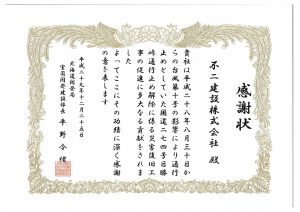 感謝状
不二建設株式会社 殿
貴社は平成二十八年八月三十日か
らの台風第十号の影響により通行
止めとしていた国道二七四号日勝
峠通行止め解除に係る災害復旧工
事の促進に多大なる貢献をされま
した
よってここにその功績に深く感謝
の意を表します
平成二十九年十二月二十五日
北海道開発局
室蘭開発建設部長 平野令緒